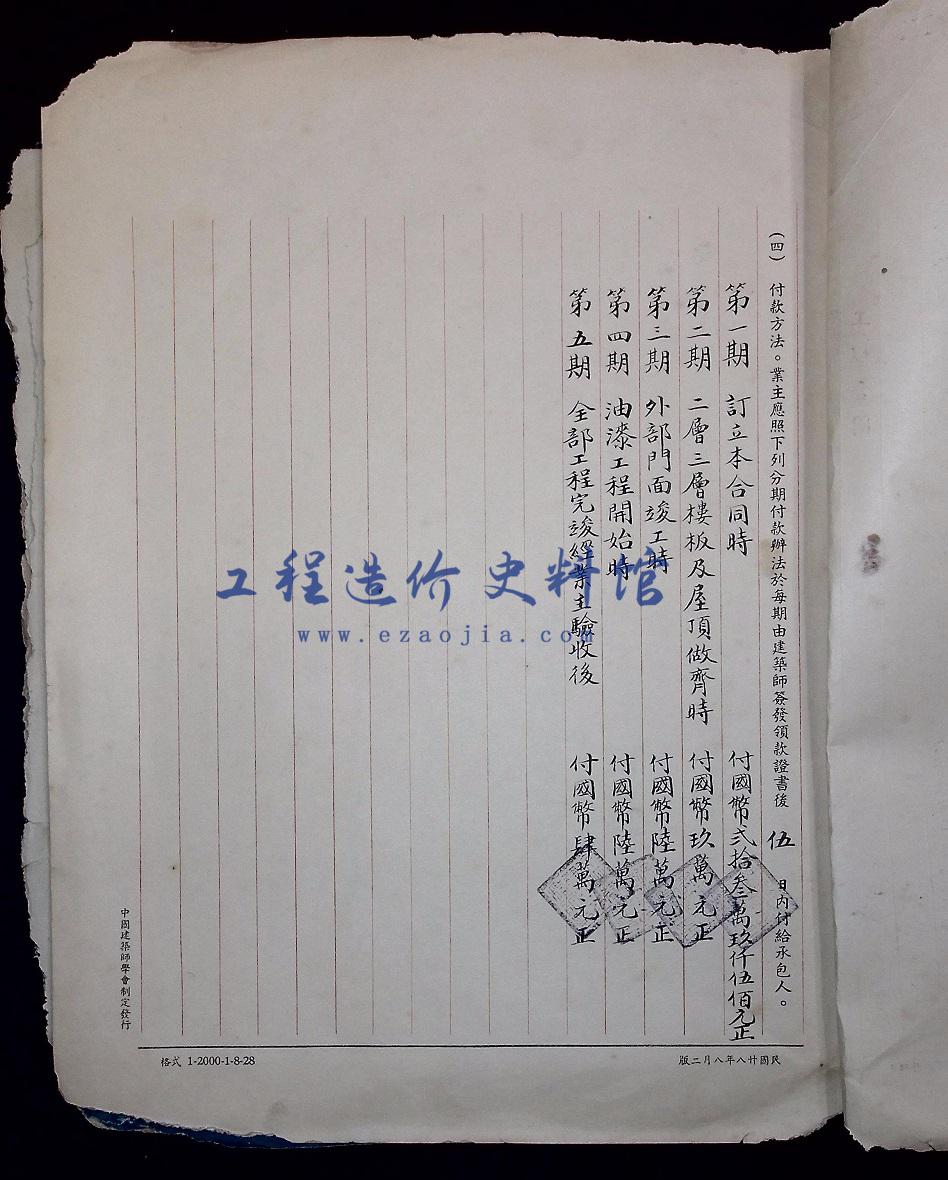 (四) 付款方法。業主應照下列分期付款辦法於每期由建築師簽發領款證書後 伍 日內付給承包人。
第一期 訂立本合同時 付國幣弍拾叁萬玖仟伍佰元正
第二期 二層三層樓板及屋頂做齊時 付國幣玖萬元正
第三期 外部門面竣工時 付國幣陸萬元正
第四期 油漆工程開始時 付國幣陸萬元正
第五期 全部工程完竣經業主驗收後 付國幣肆萬元正
中國建築師學會制定發行
版二月八年八廿國民
格式 1-2000-1-8-28
工程造价史料馆
www.ezaojia.com